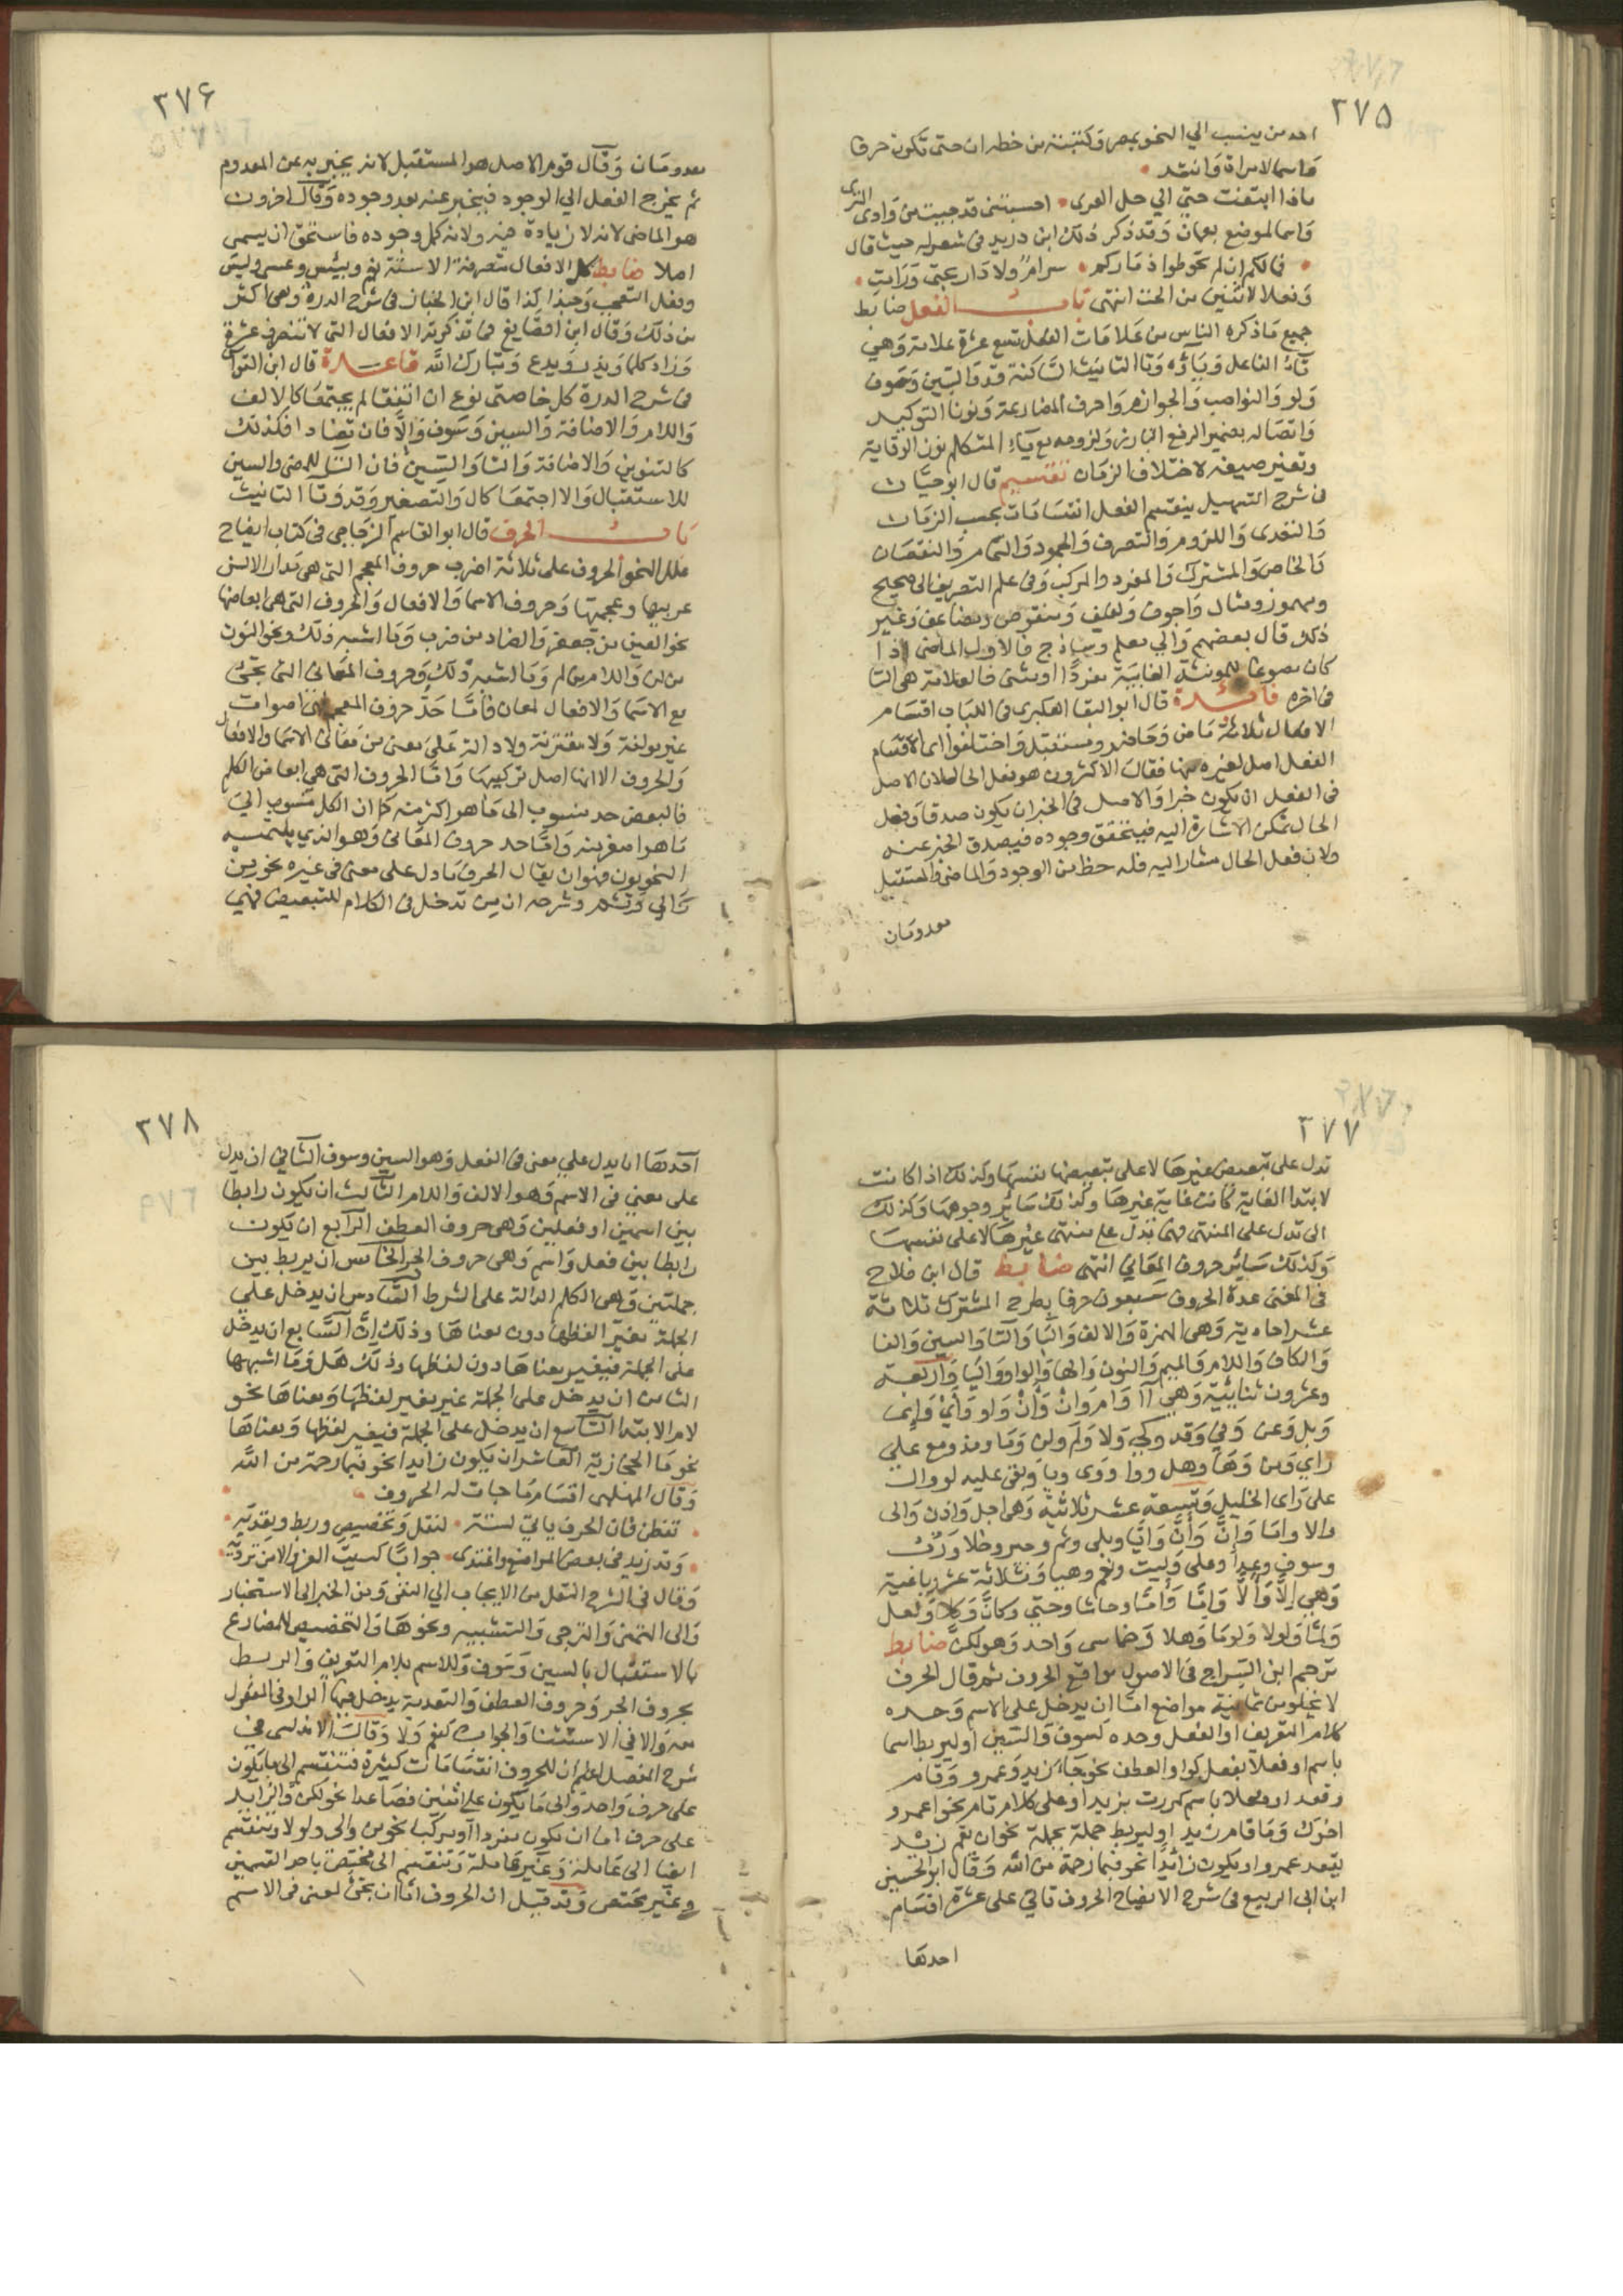 ٣٧٥
احد من ينسب الي النحو بمصر وكتبته من خطه ان حتى تكون حرفا
واسما لامراة وانشد
ماذا ابتغت حتى الي حل العرى احسبتني قد جيت من وادى القرى
واسما لموضع بعمان وقد ذكر ذلك ابن دريد فى شعر له حيث قال
فما لكم ان لم تحوطوا ذماركم سوام ولا دار بحتى ورامت
وفعلا لاثنين من الحت انتهى باب الفعل ضابط
جميع ما ذكره الناس من علامات الفعل تسع عشرة علامة وهي
تاء الفاعل وياؤه وتا التانيث الساكنة وقد والسين وسوف
ولو والنواصب والجوازم واحرف المضارعة ونونا التوكيد
واتصاله بضمير الرفع البارز ولزومه مع ياء المتكلم نون الوقاية
وتغير صيغه لاختلاف الزمان تقسيم قال ابو حيان
فى شرح التسهيل ينقسم الفعل انقسامات بحسب الزمان
والتعدى واللزوم والتصرف والجمود والتمام والنقصان
والخاص والمشترك والمفرد والمركب وفى علم التصريف الى صحيح
ومهموز ومثال واجوف ولفيف ومنقوص ومضاعف وغير
ذلك قال بعضهم والي معلم وساذج فالاول الماضى اذا
كان مصوغا للمونثة الغايبة مفردا او مثنى فالعلامة هى التا
فى اخره فائدة قال ابو البقا العكبرى فى اللباب اقسام
الافعال ثلاثة ماض وحاضر ومستقبل واختلفوا اى اقسام
الفعل اصل لغيره منها فقال الاكثرون هو فعل الحال لان الاصل
فى الفعل ان يكون خبرا والاصل فى الخبر ان يكون صدقا وفعل
الحال يمكن الاشارة اليه فيتحقق وجوده فيصدق الخبر عنه
ولان فعل الحال مشار اليه فله حظ من الوجود والماضى والمستقبل
معدومان
٣٧٦
معدومان وقال قوم الاصل هو المستقبل لانه يخبر به عن المعدوم
ثم يخرج الفعل الي الوجود فيخبر عنه بعد وجوده وقال اخرون
هو الماضى لانه لا زيادة فيه ولانه كمل وجوده فاستحق ان يسمى
اصلا ضابط كل الافعال متصرفة الا ستة نعم وبيس وعسى وليس
وفعل التعجب وحبذا كذا قال ابن الخباز فى شرح الدرة وهى اكثر
من ذلك وقال ابن الصايغ فى تذكرته الافعال التى لا تتصرف عشرة
وزاد كلما ويذر ويدع وتبارك الله قاعدة قال ابن القواس
فى شرح الدرة كل خاصتى نوع ان اتفقا لم يجتمعا كالالف
واللام والاضافة والسين وسوف والا فان تضادا فكذلك
كالتنوين والاضافة والتا والسين فان التا للمضى والسين
للاستقبال والا اجتمعا كال والتصغير وقد وتا التانيث
باب الحرف قال ابو القاسم الزجاجى فى كتاب ايضاح
علل النحو الحروف على ثلاثة اضرب حروف المعجم التى هى مدار الالسن
عربيها وعجميها وحروف الاسما والافعال والحروف التى هى ابعاضها
نحو العين من جعفر والضاد من ضرب وما اشبه ذلك ونحو النون
من لن واللام من لم وما اشبه ذلك وحروف المعانى التى تجئ
مع الاسما والافعال لمعان فاما حد حروف المعجم فهى اصوات
غير مولفة ولا مقترنة ولا دالة على معنى من معانى الاسما والافعال
والحروف الا انها اصل تركيبها واما الحروف التى هى ابعاض الكلم
فالبعض حد منسوب الى ما هو اكثر منه كما ان الكل منسوب الى
ما هو اصغر منه واما حد حروف المعانى وهو الذي يلتمسه
النحويون فهو ان يقال الحرف ما دل على معنى فى غيره نحو من
والي وثم وشرحه ان من تدخل فى الكلام للتبعيض فهي
٣٧٧
تدل على تبعيض غيرها لا على تبعيضها نفسها وكذلك اذا كانت
لابتدا الغاية كانت غاية غيرها وكذلك سائر وجوهها وكذلك
الى تدل على المنتهى فهى تدل على منتهى غيرها لا على نفسها
وكذلك سائر حروف المعاني انتهى ضابط قال ابن فلاح
فى المغنى عدة الحروف سبعون حرفا بطرح المشترك ثلاثة
عشر احادية وهى الهمزة والالف والبا والتا والسين والفا
والكاف واللام والميم والنون والها والواو واليا واربعة
وعشرون ثنايئية وهي آا وام وان وأن واو واي واي
وبل وعن وفي وقد وكي ولا ولم ولن وما ومذ ومع علي
راي ومن وها وهل ووا ووى ويا وبقى عليه لو وال
على راى الخليل وتسعة عشر ثلاثية وهى اجل واذن والى
والا واما وان وأن وايا وبلى وثم وجير وخلا ورب
وسوف وعدا وعلى وليت ونعم وهيا وثلاثة عشر رباعية
وهي الا وألا واما وأما وحاشا وحتى وكان وكلا ولعل
ولما ولولا ولوما وهلا وخماسى واحد وهو لكن ضابط
ترجم ابن السراج فى الاصول مواقع الحروف ثم قال الحرف
لا يخلو من ثمانية مواضع اما ان يدخل على الاسم وحده
كلام التعريف او الفعل وحده كسوف والسين او ليربط اسما
باسم او فعلا بفعل كواو العطف نحو جاء زيد وعمرو وقام
وقعد او فعلا باسم كمررت بزيد او على كلام تام نحو اعمرو
اخوك وما قام زيد او ليربط جملة بجملة نحو ان يقم زيد
يقعد عمرو او يكون زائدا نحو فبما رحمة من الله وقال ابو الحسين
ابن ابى الربيع فى شرح الايضاح الحروف تاتي على عشرة اقسام
احدها
٣٧٨
احدها ان يدل علي معنى فى الفعل وهو السين وسوف الثاني ان يدل
على معنى فى الاسم وهو الالف واللام الثالث ان يكون رابطا
بين اسمين او فعلين وهى حروف العطف الرابع ان يكون
رابطا بين فعل واسم وهى حروف الجر الخامس ان يربط بين
جملتين وهى الكلم الدالة على الشرط السادس ان يدخل علي
الجملة مغيرا لفظها دون معناها وذلك ان السابع ان يدخل
على الجملة فيغير معناها دون لفظها وذلك هل وما اشبهها
الثامن ان يدخل على الجملة غير مغير لفظها ومعناها نحو
لام الابتدا التاسع ان يدخل على الجملة فيغير لفظها ومعناها
نحو ما الحجازية العاشر ان يكون زايدا نحو فبما رحمة من الله
وقال المهلبى اقسام ما جات له الحروف
تفطن فان الحرف ياتي لستة لنقل وتخصيص وربط وتعديه
وقد زيد فى بعض المواضع واغتدى جوابا كسيت العز والامن ترديه
وقال فى الشرح النقل من الايجاب الي النفى ومن الخبر الى الاستخبار
والى التمنى والترجى والتشبيه ونحوها والتخصيص للمضارع
بالاستقبال بالسين وسوف وللاسم بلام التعريف والربط
بحروف الجر وحروف العطف والتعدية يدخل فيها الواو فى المفعول
معه والا في الاستثنا والجواب كنعم ولا وقال الاندلسى فى
شرح المفصل اعلم ان للحروف انقسامات كثيرة فتنقسم الى ما يكون
على حرف واحد والى ما يكون على اثنين فصاعدا نحو لكن والزايد
على حرف اما ان يكون مفردا او مركبا نحو من والى ولولا وتنقسم
ايضا الى عاملة وغير عاملة وتنقسم الى مختص باحد القسمين
وغير مختص وقد قيل ان الحروف اما ان تجئ لمعنى فى الاسم